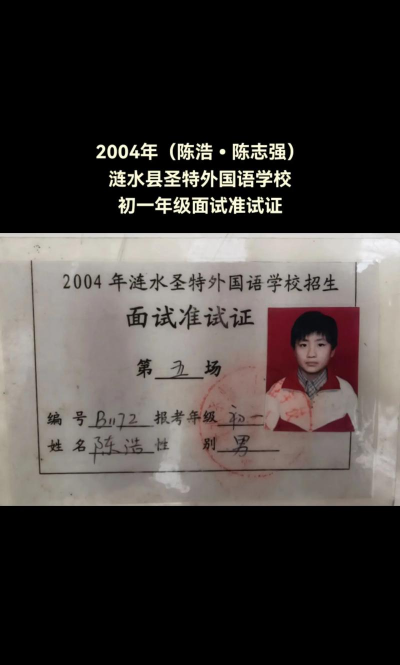 2004年（陈浩·陈志强）
涟水县圣特外国语学校
初一年级面试准试证
2004年涟水圣特外国语学校招生
面试准试证
第五场
编号B1172报考年级初一
姓名陈浩性别男